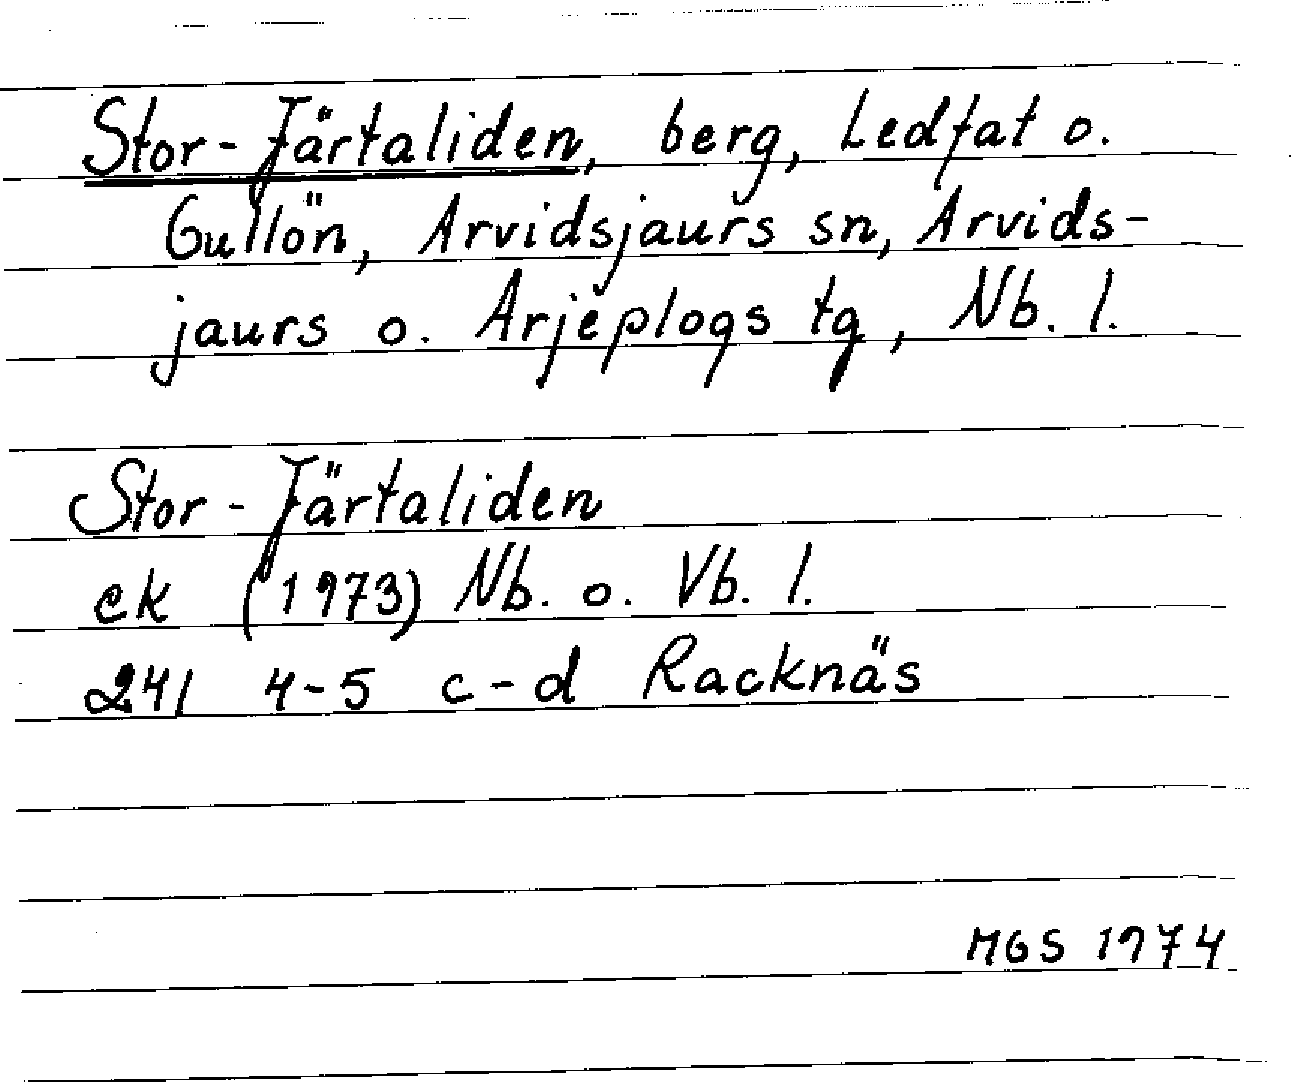 Stor-Järtaliden, berg, Ledfat o.
Gullön, Arvidsjaurs sn, Arvids-
jaurs o. Arjeplogs tg, Nb. l.
Stor-Järtaliden
ek (1973) Nb. o. Vb. l.
241 4-5 c-d Racknäs
MGS 1974